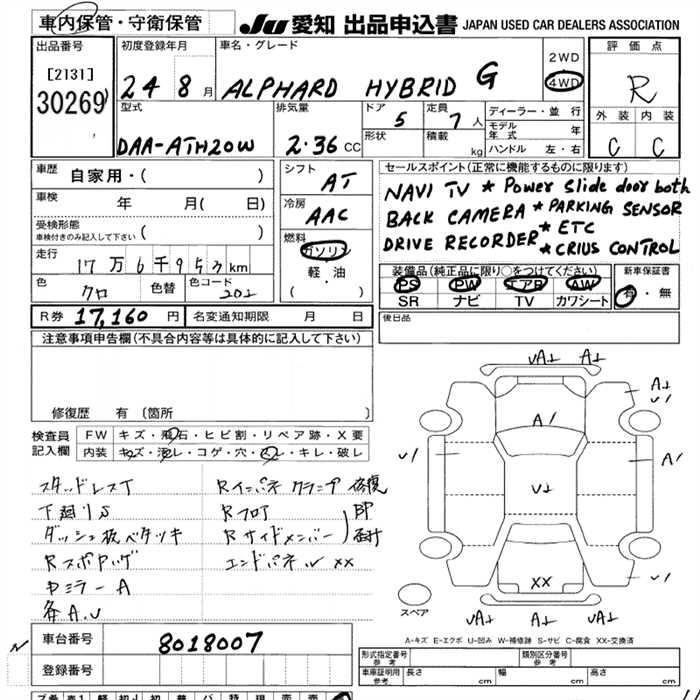 車内保管・守衛保管
JU 愛知 出品申込書 JAPAN USED CAR DEALERS ASSOCIATION
出品番号
[2131]
30269
初度登録年月
24 8月
車名・グレード
ALPHARD HYBRID G
2WD
4WD
評価点
R
外装 内装
C C
型式
DAA-ATH20W
排気量
2.36 CC
ドア
5
定員
7人
形状
積載
kg
ディーラー・並行
モデル年式 年
ハンドル 左・右
車歴
自家用・( )
車検 年 月( 日)
受検形態
車検付きのみ記入して下さい ( )
走行
17万6千953km
色
クロ
色替
色コード
202
シフト
AT
冷房
AAC
燃料
ガソリン
軽・油
( )
セールスポイント(正常に機能するものに限ります)
NAVI TV * Power slide door both
BACK CAMERA * PARKING SENSOR
DRIVE RECORDER * ETC
* CRIUS CONTROL
装備品(純正品に限り○をつけてください)
PS PW エアB AW
SR ナビ TV カワシート
新車保証書
有・無
R券 17,160 円
名変通知期限 月 日
後日品
注意事項申告欄(不具合内容等は具体的に記入して下さい)
修復歴 有 (箇所 )
検査員記入欄
FW キズ・飛石・ヒビ割・リペア跡・X要
内装 キズ・汚レ・コゲ・穴・スレ・キレ・破レ
スタッドレスT
下廻りS
ダッシュ板ベタツキ
Rインパネ クランプ 修復
Rフロア
Rサイドメンバー
エンドパネル XX
ミラーA
各A.U
A U
A
A/
XX
スペア
A-キズ E-エクボ U-凹み W-補修跡 S-サビ C-腐食 XX-交換済
車台番号
8018007
登録番号
形式指定番号
参考
類別区分番号
参考
車庫証明用
参考
長さ cm
幅 cm
高さ cm